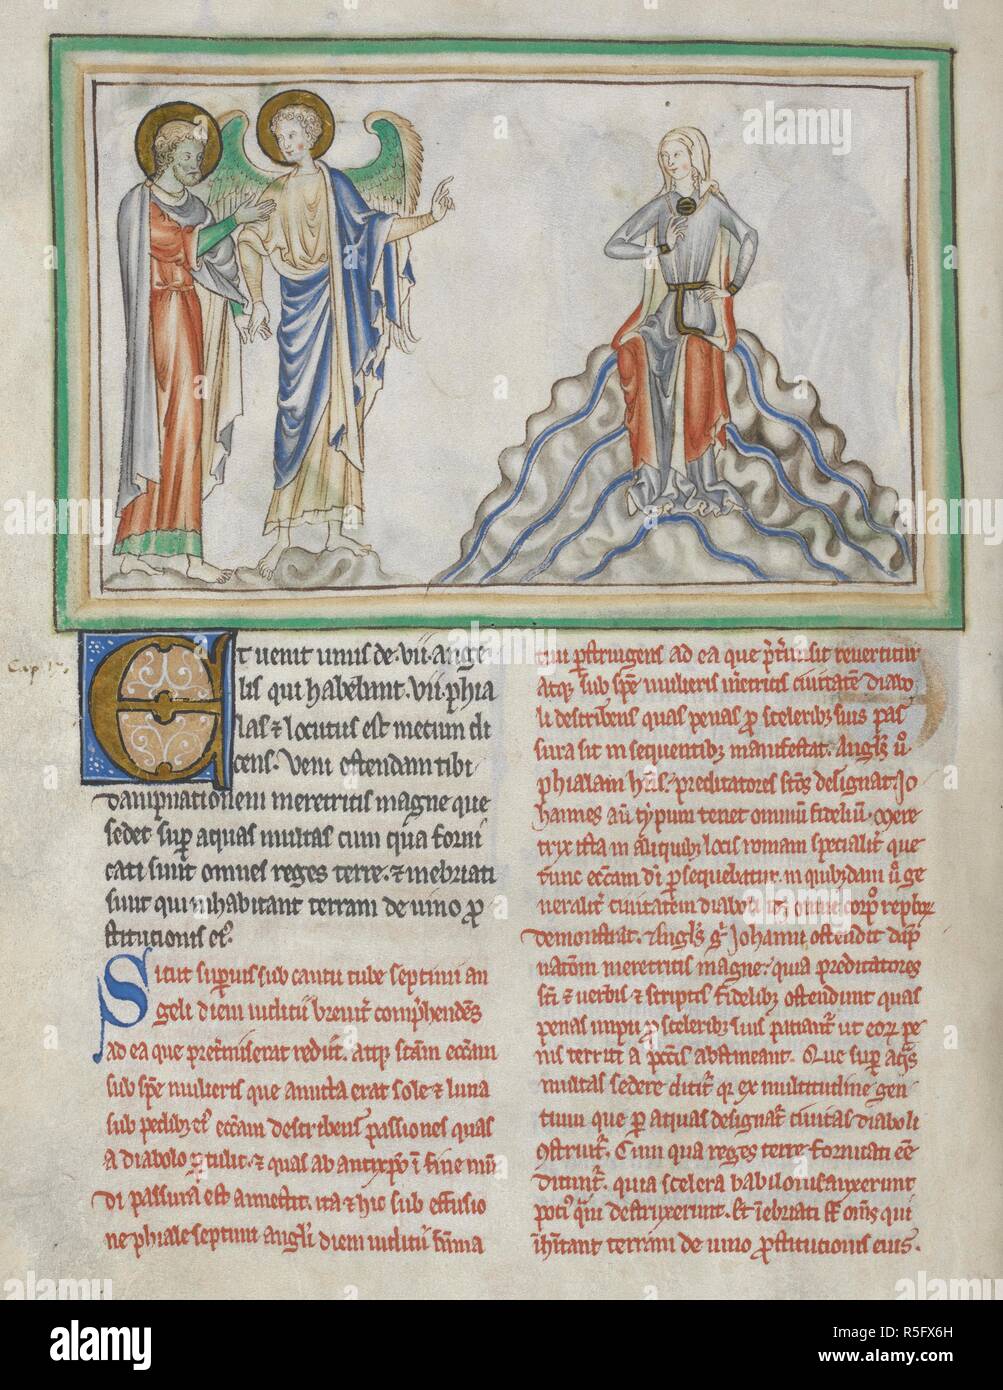 Cap. 17.
Et uenit unus de .vii. ange-
lis qui habebant .vii. phia
las & locutus est mecum di
cens. Veni ostendam tibi
dampnationem meretricis magne que
sedet sup aquas multas cum qua forni
cati sunt omnes reges terre. & inebriati
sunt qui inhabitant terram de uino p
stitutionis ei9.
Sicut supius sub cantu tube septimi an
geli diem iudicii breuit comphendes
ad ea que pretmiserat rediit. atq scam eccam
sub spe mulieris que amicta erat sole & luna
sub pedib3 ei9 eccam describens passiones quas
a diabolo ptulit. & quas ab antixpo i fine mu
di passura est annectit. ita & hic sub effusio
ne phiale septimi angli diem iudicii
pstringens ad ea que sit reuertitur
atq sub spe mulieris meretricis ciuitate diabo
li describens quas penas p scelerib3 suis pas
sura sit in sequentib3 manifestat. Angls
phialam hns. predicatores scos designat. Jo
hannes typum tenet omnium fidelium. Mere
trix ista in aliquib3 locis romam specialit que
tunc eccam di psequebatur. in quibusdam ge
neralit ciuitatem diaboli
demonstrat. Angls Johanni ostendit dap
natoem meretricis magne. quia predicatores
sci & uerbis & scriptis fidelib3 ostendunt quas
penas impii p scelerib3 suis patiant ut eor pe
nis territi a pccis abstineant. Que sup aqs
multas sedere dicit qr ex multitudine gen
tium que p aquas designat ciuitas diaboli
9struit. Cum qua reges terre fornicati ee
dicunt. quia scelera babilonis auxerunt
poci9 qm destruxerunt. Et inebriati st oms qui
inhitant terram de uino pstitutionis eius.
alamy
a
R5FX6H
www.alamy.com